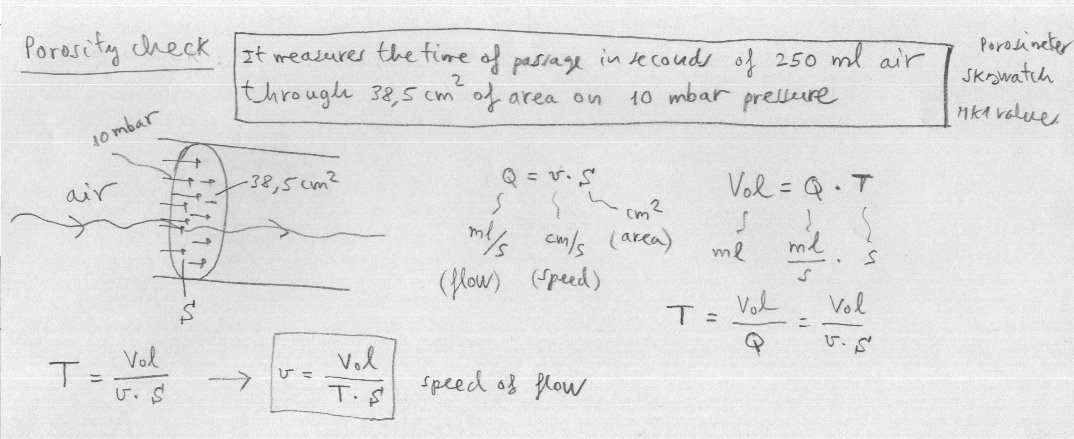 Porosity check
It measures the time of passage in seconds of 250 ml air
through 38,5 cm² of area on 10 mbar pressure
Porosimeter
Skywatch
MK1 value
10 mbar
air
38,5 cm²
S
Q = v · S
ml/s cm/s cm² (area)
(flow) (speed)
Vol = Q · T
ml ml/s · s
T = Vol/Q = Vol/v·S
T = Vol/v·S → v = Vol/T·S speed of flow